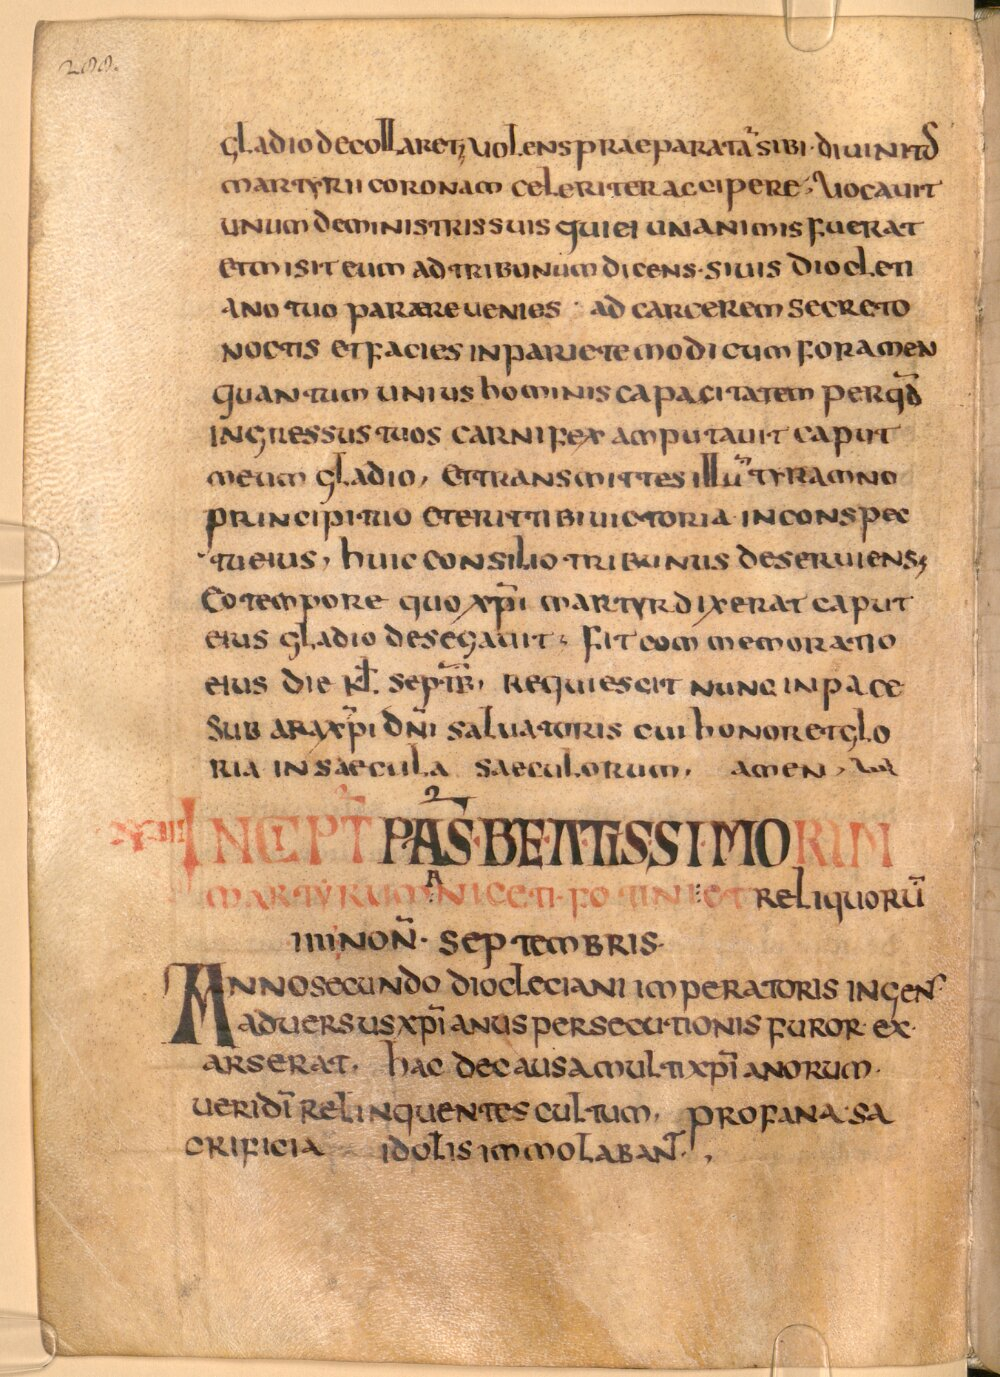 200.
gladio decollaret; volens praeparatā sibi · divinit᷒
martyrii coronam celeriter accipere, vocavit
unum de ministris suis qui ei unanimis fuerat
et misit eum ad tribunum dicens · si vis diocleti
ano tuo parære venies ad carcerem secreto
noctis et facies in pariete modicum foramen
quantum unius hominis capacitatem per qđ
ingressus tuos carnifex amputavit caput
meum gladio, et transmittes illū tyramno
principi tuo et erit tibi victoria in conspec
tu eius, huic consilio tribunus deserviens;
Eo tempore quo xp̄i martyr dixerat caput
eius gladio desegavit · fit commemoratio
eius die kł. septb̄r, requiescit nunc in pace
sub ara xp̄i dn̄i salvatoris cui honor et glo
ria in saecula saeculorum, amen,
INCIPT̄ PĀS · BEATISSIMORUM
martyrum niceti · fotini et reliquorū
iiii noñ · septembris ·
Anno secundo diocleciani imperatoris ingens
adversus xp̄ianus persecutionis furor ex
arserat, hac de causa multi xp̄ianorum ·
veri dī relinquentes cultum, profana sa
crificia idolis immolaban̄t · ,